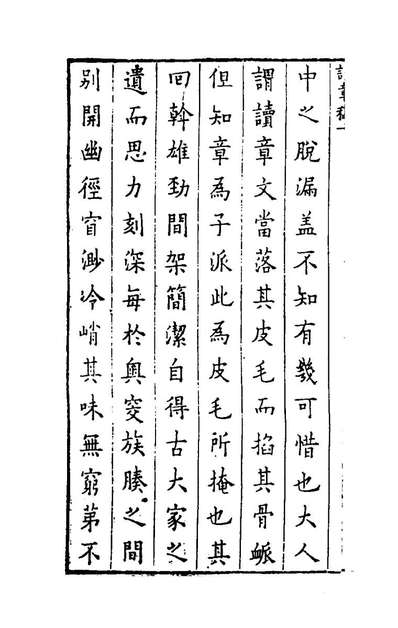 中之脫漏盖不知有幾可惜也大人
謂讀章文當落其皮毛而掐其骨䘑
但知章為子派此為皮毛所掩也其
回斡雄勁間架簡潔自得古大家之
遺而思力刻深每於奧窔族腠之間
别開幽徑窅渺冷峭其味無窮第不